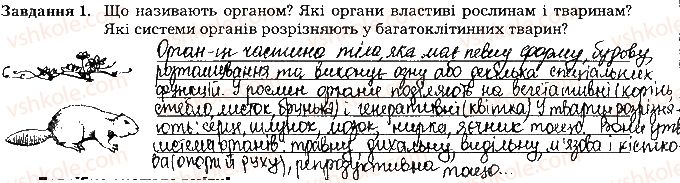 Завдання 1. Що називають органом? Які органи властиві рослинам і тваринам?
Які системи органів розрізняють у багатоклітинних тварин?
Орган-це частина тіла, яка має певну форму, будову,
розташування та виконує одну або декілька спеціальних
функцій. У рослин органи поділяють на вегетативні (корінь,
стебло, листок, брунька) і генеративні (квітка). У тварин розрізня-
ють: серце, шлунок, мозок, нирка, яєчник тощо. Вони утв.
системи органів: травну, дихальну, видільну, м'язова і кістко-
ва (опори й руху), репродуктивна тощо...